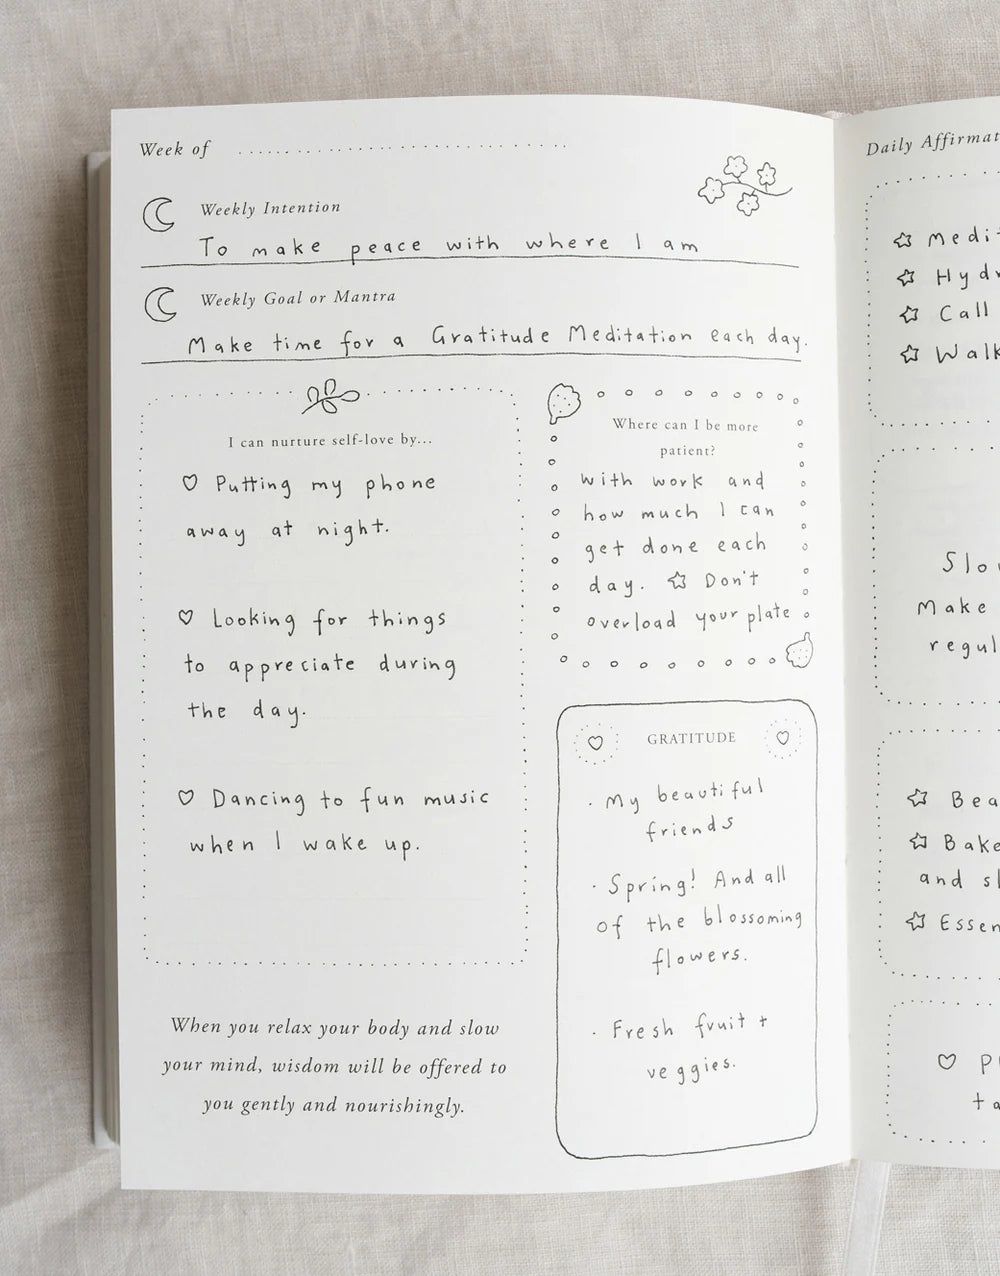 Week of
Weekly Intention
To make peace with where I am
Weekly Goal or Mantra
Make time for a Gratitude Meditation each day.
I can nurture self-love by...
Putting my phone
away at night.
Looking for things
to appreciate during
the day.
Dancing to fun music
when I wake up.
When you relax your body and slow
your mind, wisdom will be offered to
you gently and nourishingly.
Where can I be more
patient?
with work and
how much I can
get done each
day. Don't
overload your plate
GRATITUDE
· My beautiful
friends
· Spring! And all
of the blossoming
flowers.
· Fresh fruit +
veggies.
Daily
Call
Walk
Make
Bake
and